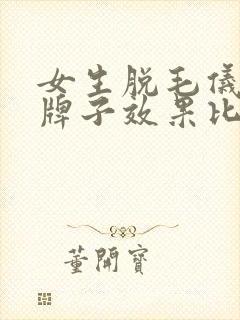 女生脱毛儀
牌子效果比
董開寶